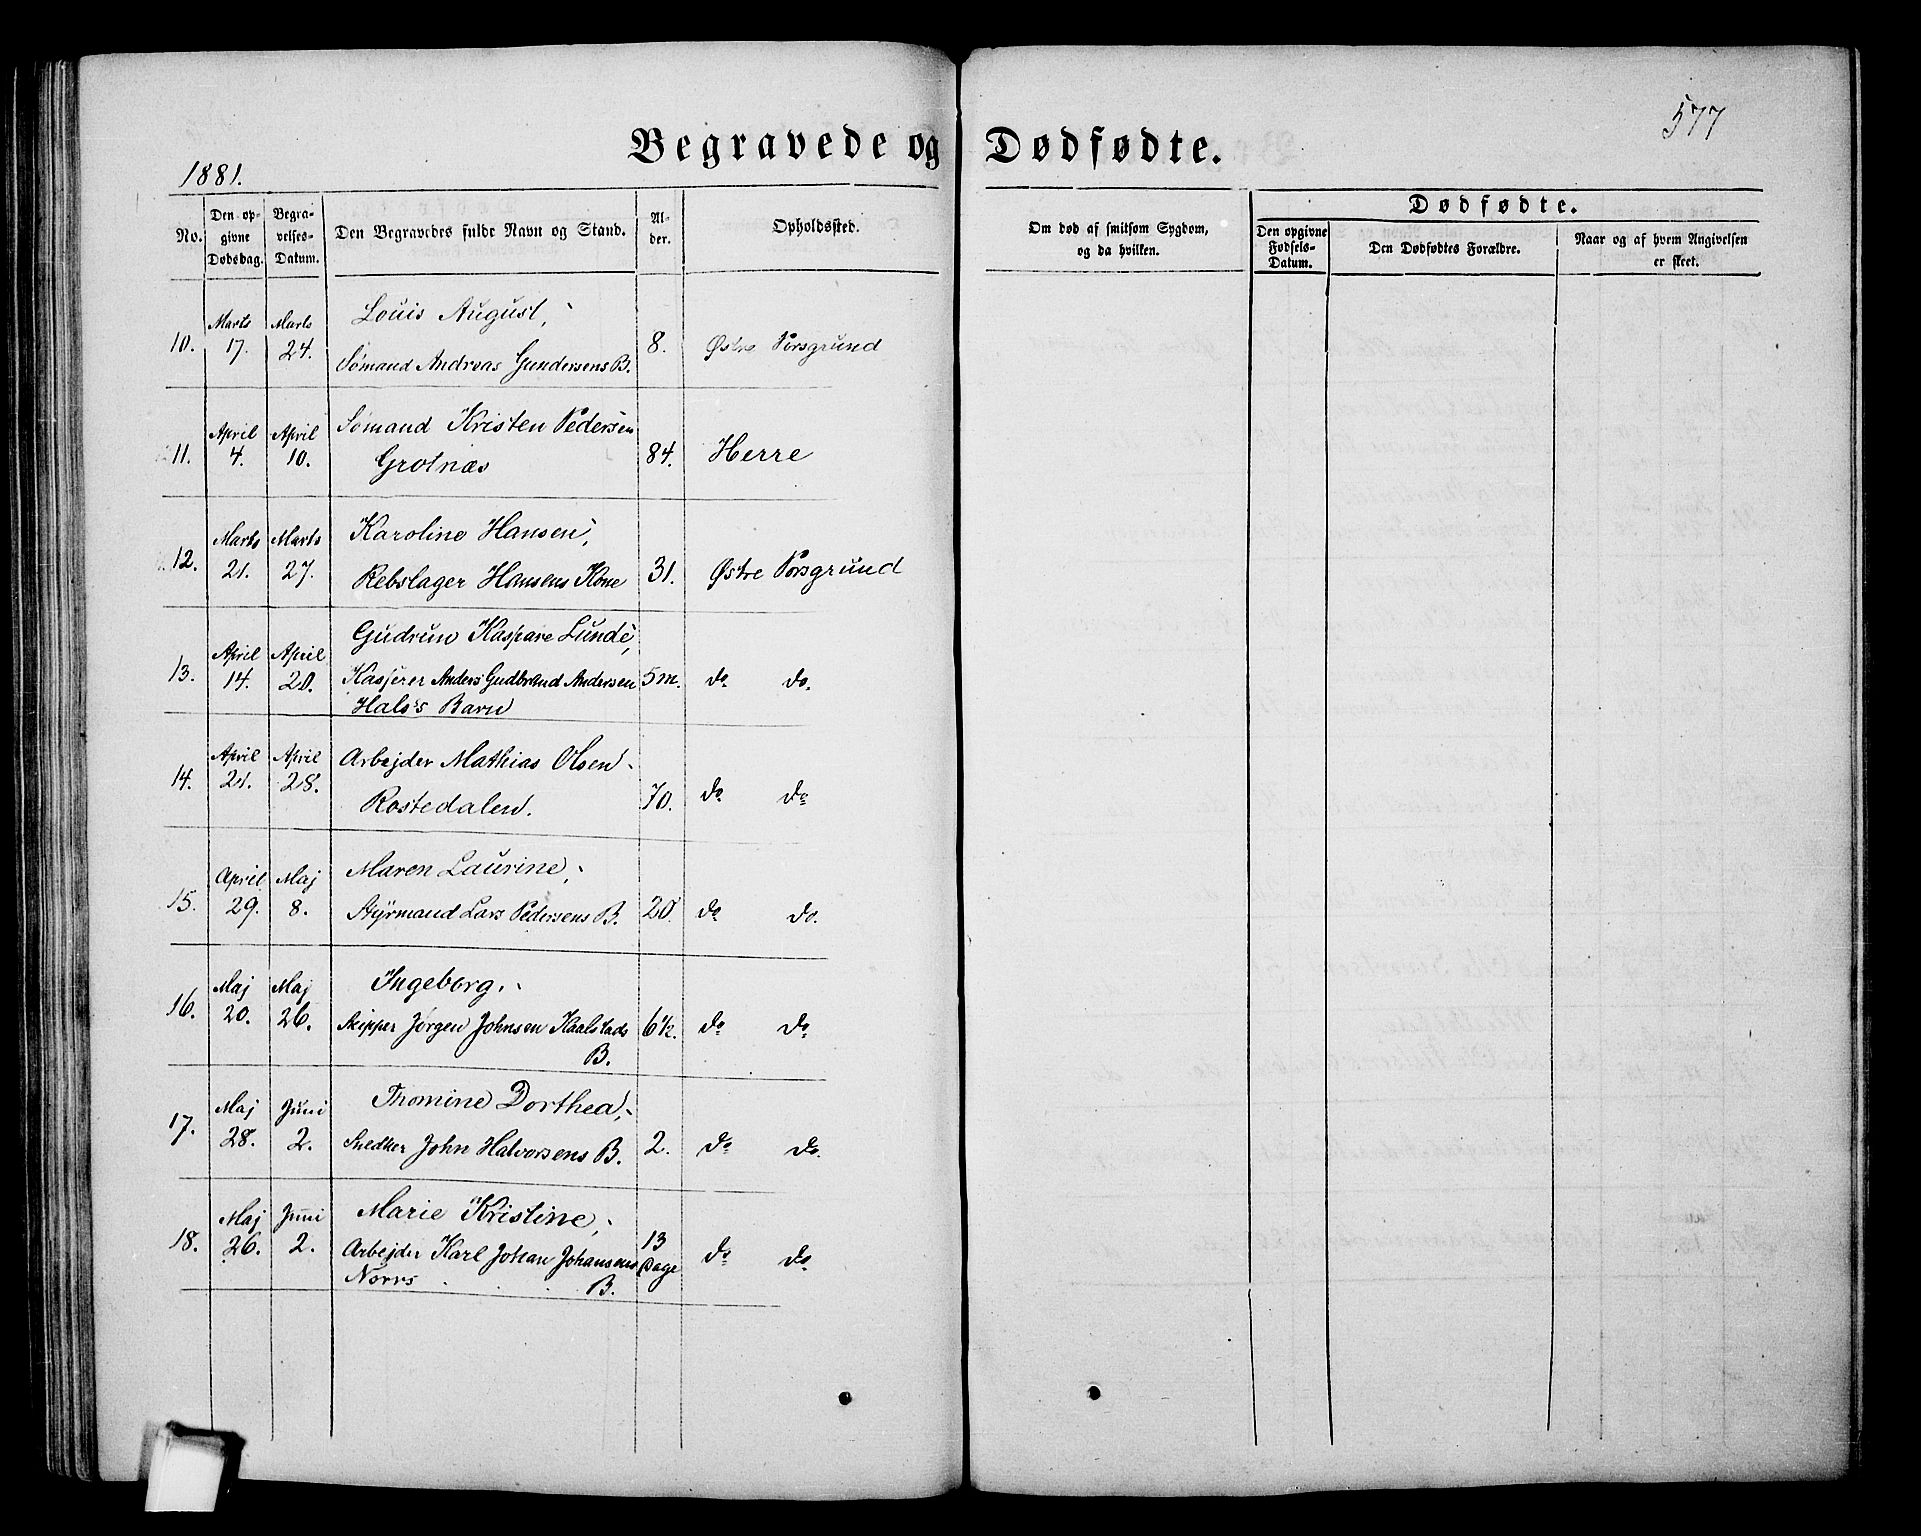 577
Begravede og Dødfødte.
1881.
No. Den opgivne Dødsdag. Begravelses-Datum. Den Begravedes fulde Navn og Stand. Alder. Opholdssted. Om død af smitsom Sygdom, og da hvilken. Dødfødte. Den opgivne Fødsels-Datum. Den Dødfødtes Forældre. Naar og af hvem Angivelsen er skeet.
10. Marts 17. Marts 24. Louis August,
Sømand Andreas Gundersens B. 8. Østre Porsgrund
11. April 4. April 10. Sømand Kristen Pedersen
Grotnæs 84. Herre
12. Marts 21. Marts 27. Karoline Hansen,
Rebslager Hansens Kone 31. Østre Porsgrund
13. April 14. April 20. Gudrun Kaspare Lunde,
Kasjerer Anders Gudbrand Andersen 5 m. do do.
Hals's Barn
14. April 21. April 28. Arbejder Mathias Olsen
Rostedalen. 70. do do
15. April 29. Maj 8. Maren Laurine,
Styrmand Lars Pedersens B. 20. do do.
16. Maj 20. Maj 26. Ingeborg,
Skipper Jørgen Johnsen Kaalstads 6½. do do
B.
17. Maj 28. Juni 2. Thomine Dorthea,
Snedker John Halvorsens B. 2. do do.
18. Maj 26. Juni 2. Marie Kristine,
Arbejder Karl Johan Johansens 13 Dage do do
B.